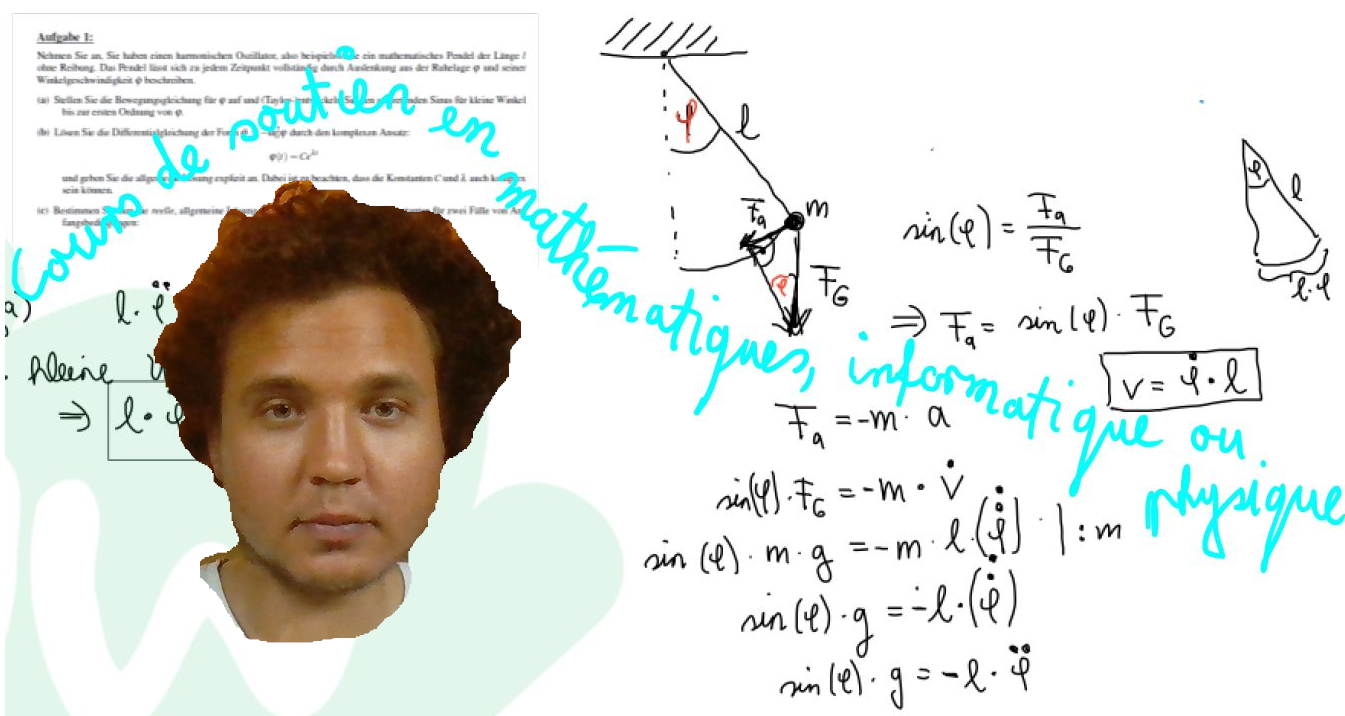 Aufgabe 1:
Nehmen Sie an, Sie haben einen harmonischen Oszillator, also ein mathematisches Pendel der Länge l
ohne Reibung. Das Pendel lässt sich zu jedem Zeitpunkt vollständig durch Auslenkung aus der Ruhelage φ und seiner
Winkelgeschwindigkeit φ̇ beschreiben.
(a) Stellen Sie die Bewegungsgleichung für φ auf und Sinus für kleine Winkel
bis zur ersten Ordnung von φ.
(b) Lösen Sie die Differentialgleichung der durch den komplexen Ansatz:
φ(t) = Ce^{λt}
und geben Sie die explizit an. Dabei ist zu beachten, dass die Konstanten C und λ auch
sein können.
(c) Bestimmen reelle, allgemeine für zwei Fälle von
Cours de soutien en mathématiques, informatique ou physique
a) l · φ̈
kleine
⇒ l · φ
φ l
F_a m
φ F_G
sin(φ) = F_a / F_G
⇒ F_a = sin(φ) · F_G
φ l
l·φ
v = φ̇ · l
F_a = -m · a
sin(φ) · F_G = -m · v̇
sin(φ) · m · g = -m · l · (φ̇)˙ | : m
sin(φ) · g = -l · (φ̇)˙
sin(φ) · g = -l · φ̈